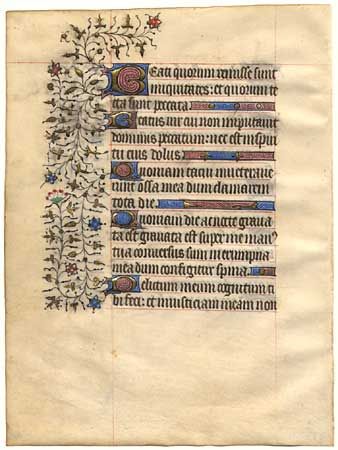 Eati quorum remisse sunt
iniquitates: et quorum te
cta sunt peccata
Eatus vir cui non imputavit
dominus peccatum: nec est in spiri
tu eius dolus
Quoniam tacui inveterave
runt ossa mea dum clamarem
tota die
Quoniam die ac nocte grava
ta est gravata est super me man
tua conversus sum in erumpna
mea dum configitur spina
Delictum meum cognitum ti
bi feci: et iniusticiam meam non